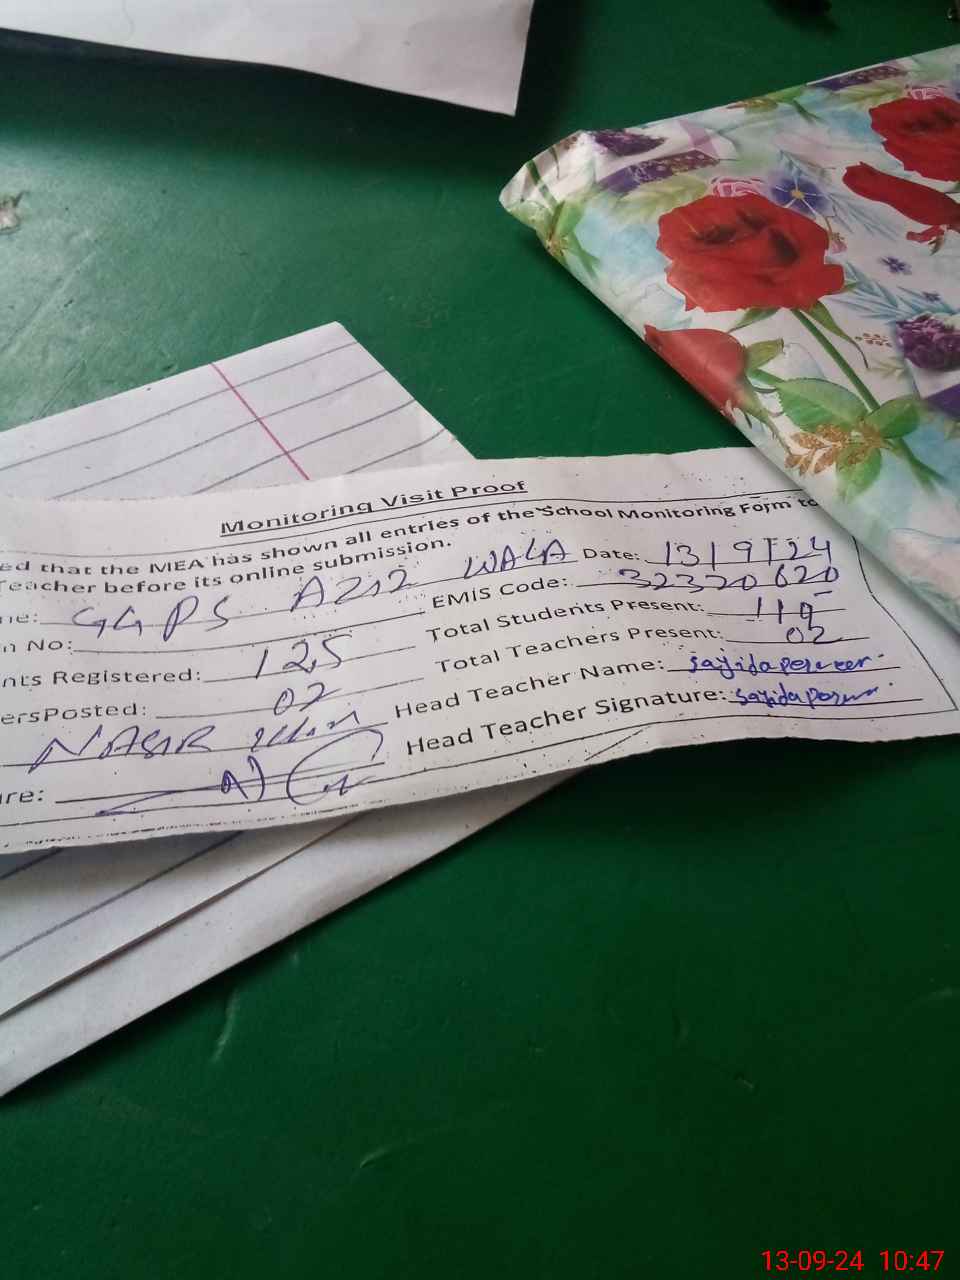 Monitoring Visit Proof
ed that the MEA has shown all entries of the School Monitoring Form to
Teacher before its online submission.
ne: GGPS AZIZ WALA Date: 13/9/24
n No: EMIS Code: 32320620
nts Registered: 125 Total Students Present: 119
ersPosted: 02 Total Teachers Present: 02
NASIR Head Teacher Name: sajida perveen
ure: Head Teacher Signature: sajida
13-09-24 10:47